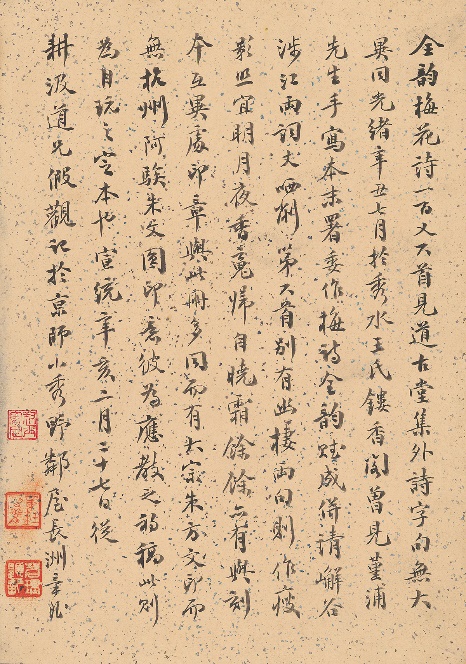 全韵梅花詩一百又六首見道古堂集外詩字句無大
異同光緒辛丑七月於秀水王氏鏤香閣曾見堇浦
先生手寫本末署委作梅詩全韵賦成倂請嶰谷
涉江兩詞丈哂削第六首别有此棲兩句則作瘦
影照窗明月夜香魂歸自曉霜餘餘亦有與刻
本互異處印章與此冊多同而有大宗朱方文印而
無杭州阿駿朱文圓印意彼為應教之初稿此則
為自玩之定本也宣統辛亥二月二十七日從
耕汲道兄假觀記於京師小秀野鄰屋長洲章鈺